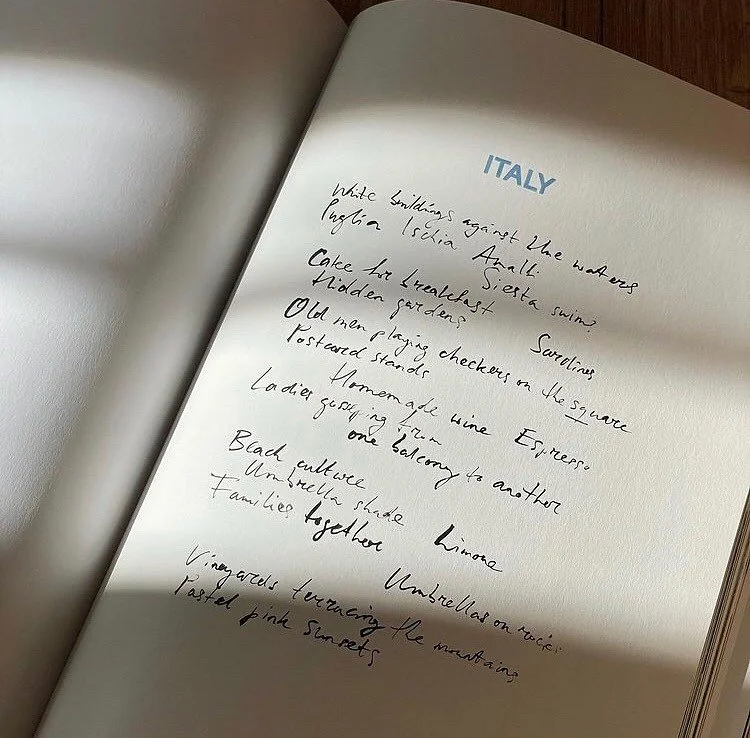 ITALY
White buildings against the waters
Puglia Ischia Amalfi
Siesta swims
Cake for breakfast
Hidden gardens
Sardines
Old men playing checkers on the square
Postcard stands
Homemade wine Espresso
Ladies gossiping from
one balcony to another
Beach culture
Umbrella shade Limone
Families together
Umbrellas on rocks
Vineyards terracing the mountains
Pastel pink sunsets